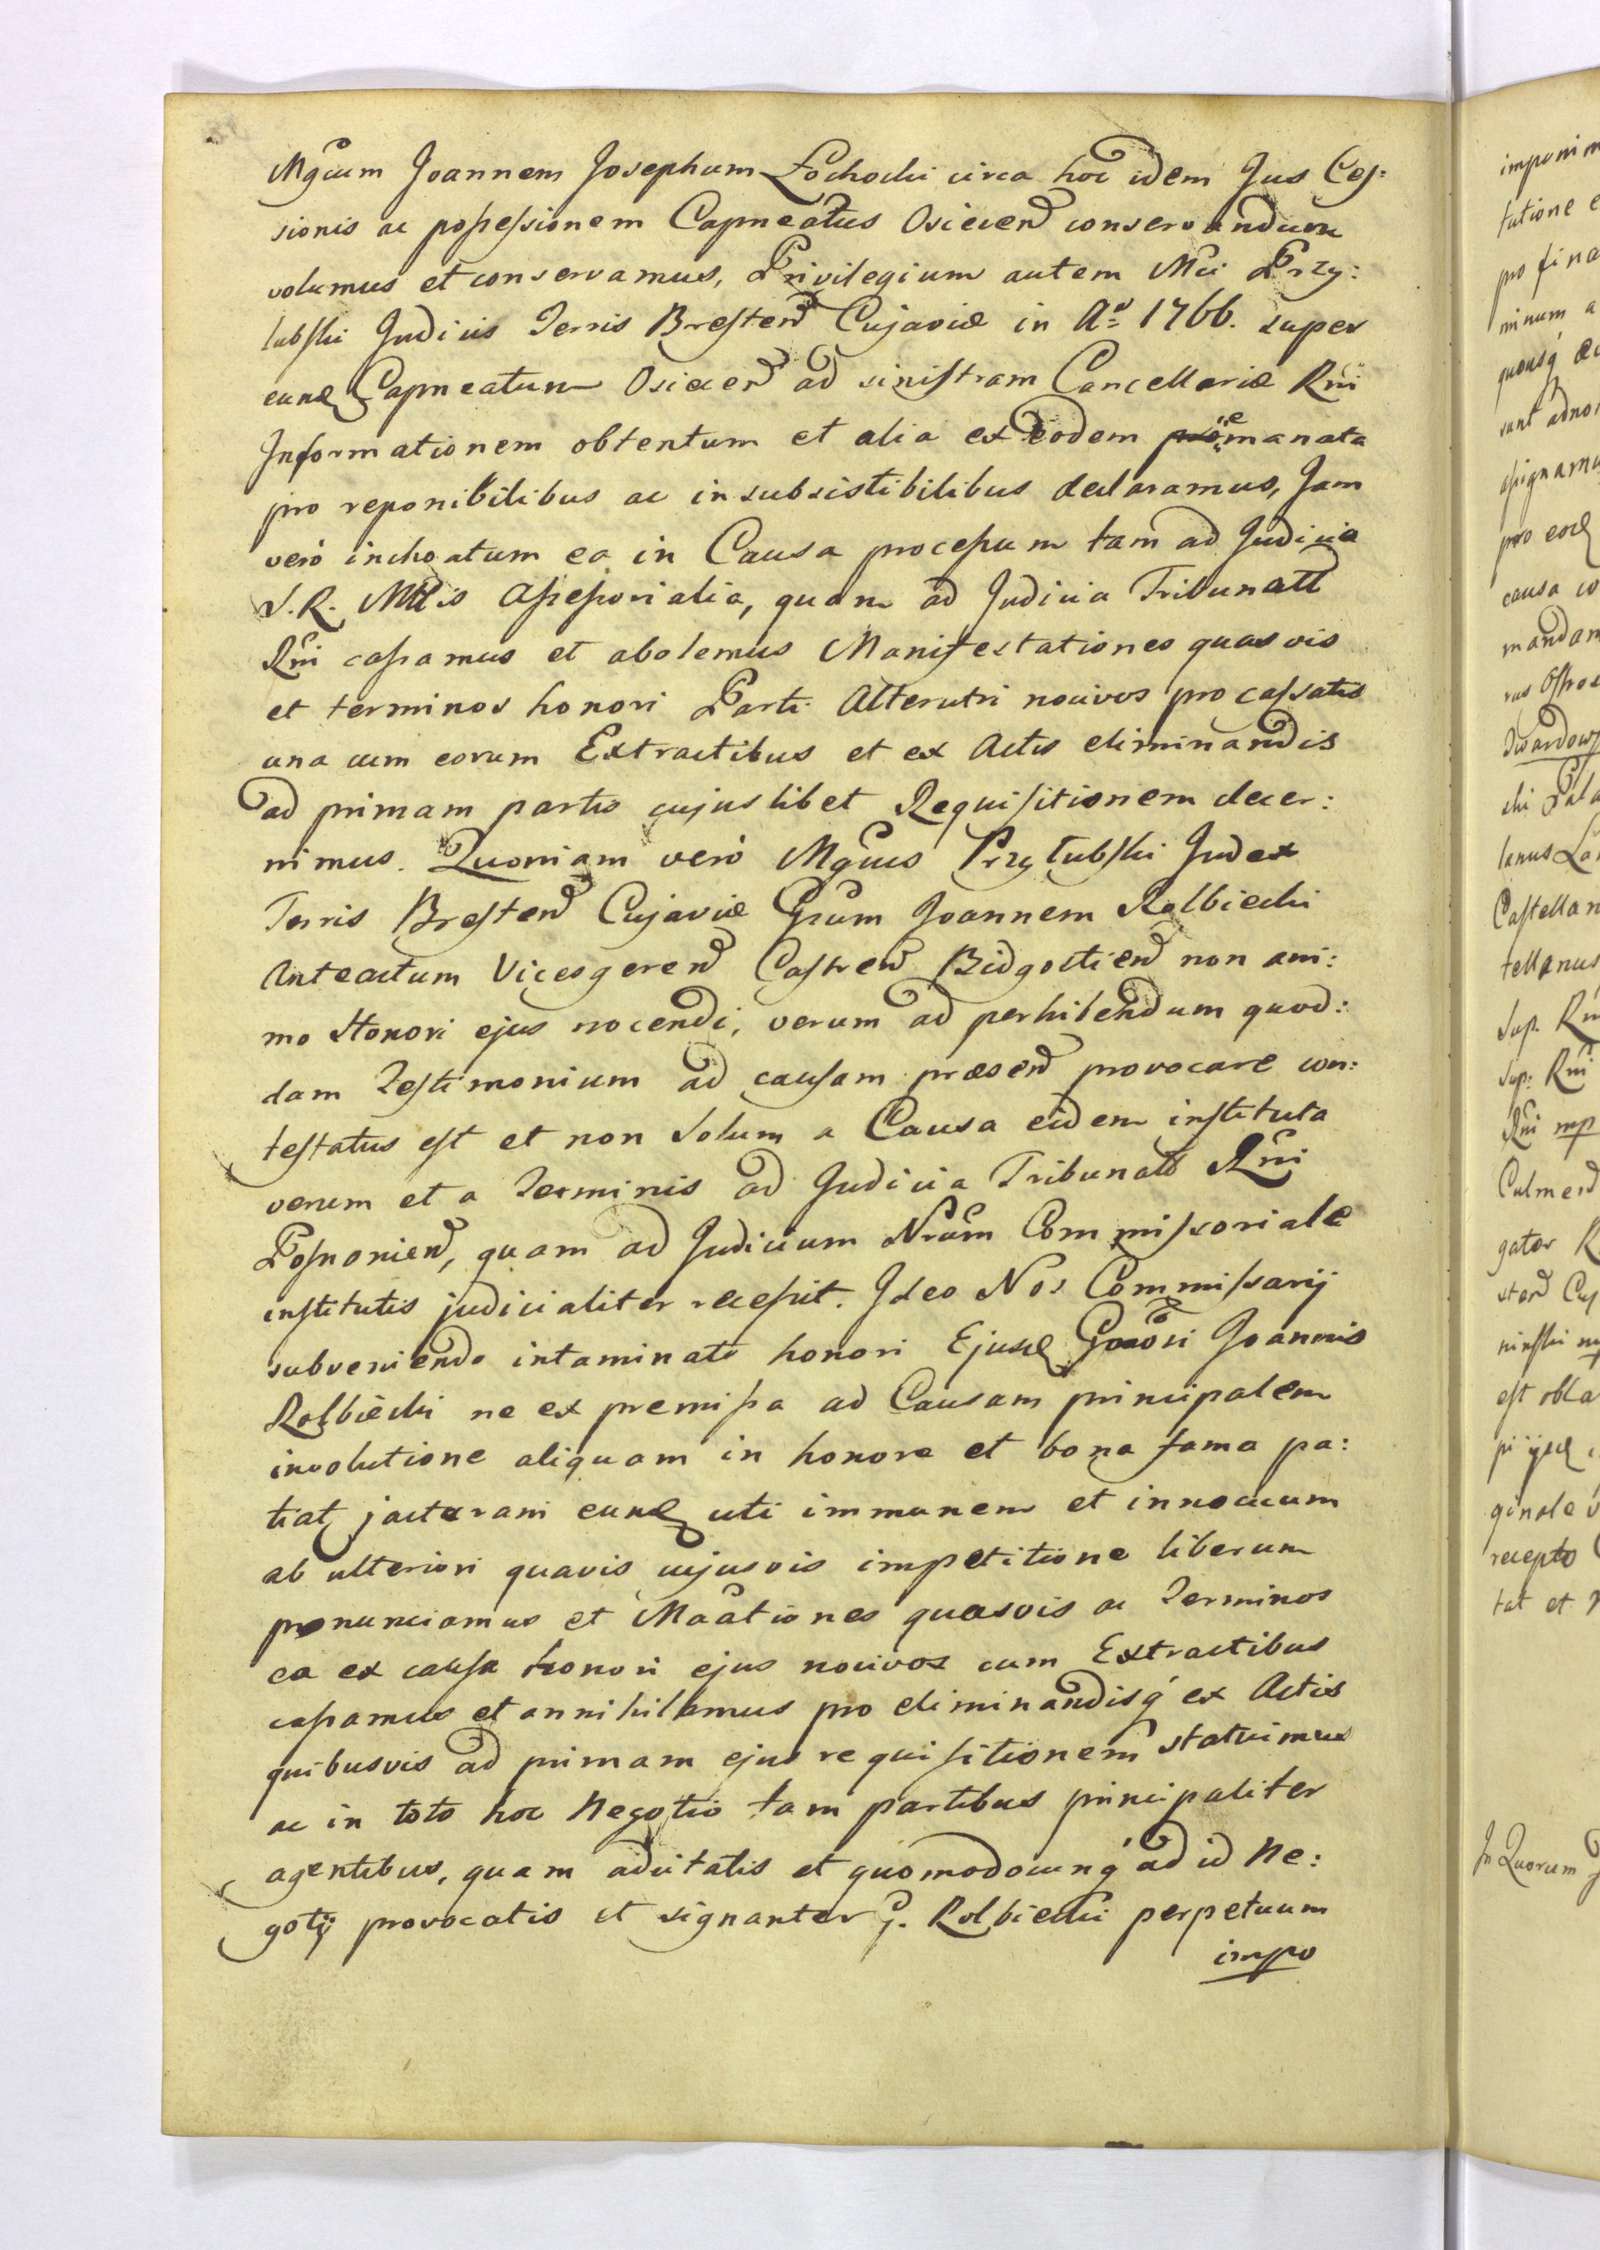 Mgcum Joannem Josephum Łochocki circa hoc idem Jus Ces:
sionis ac possessionem Capneatus Osiecen conservandum
volumus et conservamus, Privilegium autem Mci Przy:
łubski Judicis Terris Bresten Cujaviæ in Ao 1766. super
eund Capneatum Osiecen ad sinistram Cancellariæ Rni
Informationem obtentum et alia ex eodem emanata
pro reponibilibus ac insubsistibilibus declaramus, Jam
verò inchoatum ea in Causa processum tam ad Judicia
S. R. Mttis Assessorialia, quam ad Judicia Tribunatt
Rni cassamus et abolemus Manifestationes quasvis
et terminos honori Parti Alterutri nocivos pro cassatis
una cum eorum Extractibus et ex Actis eliminandis
ad primam partis cujuslibet Requisitionem decer:
nimus. Quoniam verò Mgcus Przyłubski Judex
Terris Bresten Cujaviæ Grum Joannem Rolbiecki
Anteactum Vicesgeren Castren Bidgostien non ani:
mo Honori ejus nocendi, verum ad perhibendum quod:
dam Testimonium ad causam præsen provocare con:
testatus est et non solum a Causa eidem instituta
verum et a Terminis ad Judicia Tribunatt Rni
Posnonien, quam ad Judicium Nrum Commissoriale
institutis judicialiter recessit. Ideo Nos Commissarij
subveniendo intaminato honori Ejusd Joannis
Rolbiecki ne ex premissa ad Causam principalem
involutione aliquam in honore et bona fama pa:
tiat jacturam eund uti immunem et innocuum
ab ulteriori quavis cujusvis impetitione liberum
pronunciamus et Maâtiones quasvis ac Terminos
ea ex causa honori ejus nocivos cum Extractibus
cassamus et annihilamus pro eliminandisq ex Actis
quibusvis ad primam ejus requisitionem statuimus
ac in toto hoc Negotio tam partibus principaliter
agentibus, quam adcitatis et quomodocunq ad id Ne:
gotij provocatis et signanter G. Rolbiecki perpetuum
impo
tutione
pro fina
minum a
pro eod
causa co
Castellan
tellanus
Sup. Rni
Sup: Rni
Rni mp
Culmen
gator
est obla
recepto
tat et
In Quorum